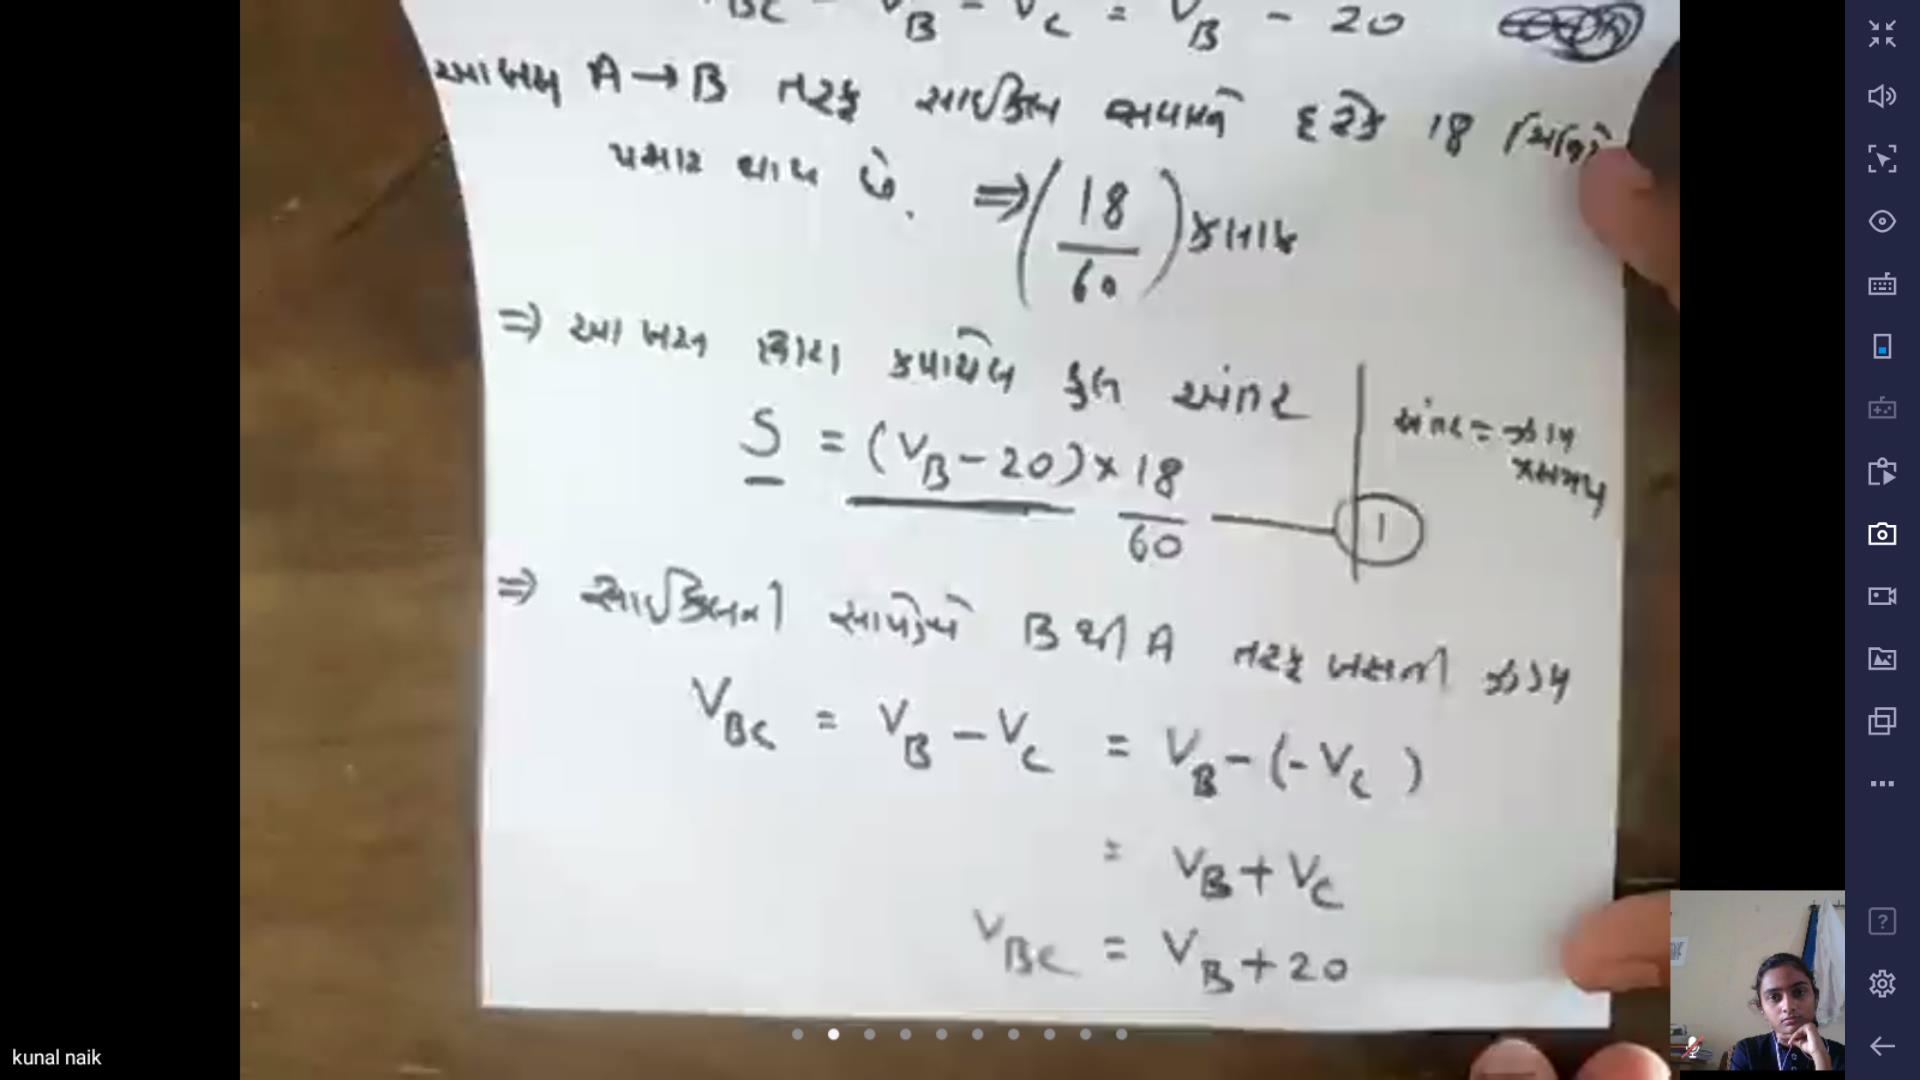 V_BC = V_B - V_C = V_B - 20
આ બસ A → B તરફ સાઈકિલ સવારને દરેક 18 મિનિટે
પસાર થાય છે. ⇒ (18/60) કલાક
⇒ આ બસ દ્વારા કપાયેલ કુલ અંતર
S = (V_B - 20) × 18/60 — 1
અંતર = ઝડપ
× સમય
⇒ સાઈકિલની સાપેક્ષે B થી A તરફ બસની ઝડપ
V_BC = V_B - V_C = V_B - (-V_C)
= V_B + V_C
V_BC = V_B + 20
kunal naik